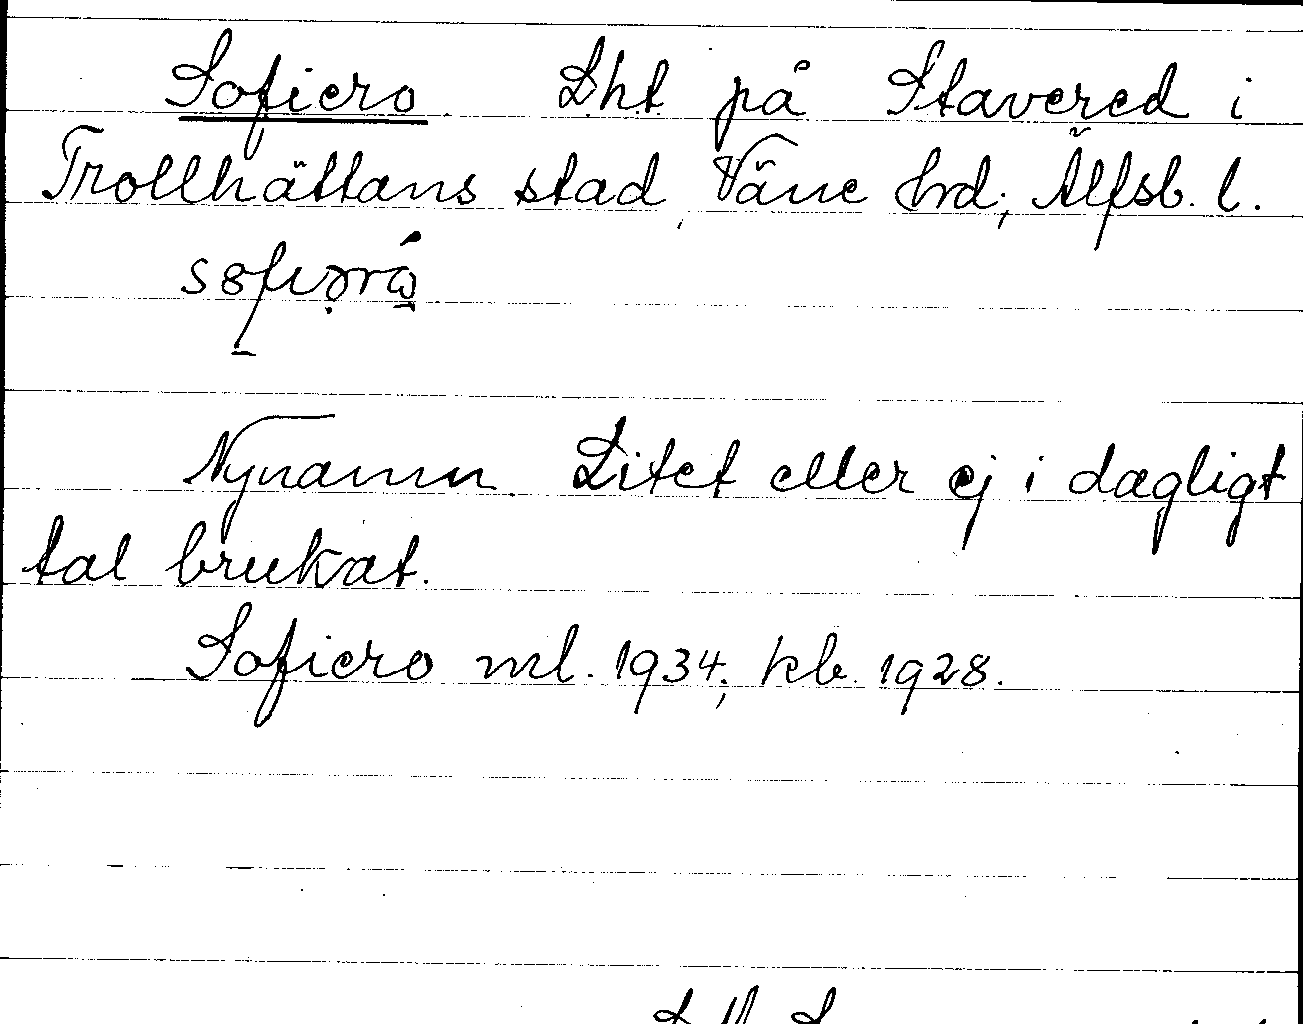 Sofiero Lht på Stavered i
Trollhättans stad, Väne hrd; Älfsb. l.
Nynamn. Litet eller ej i dagligt
tal brukat.
Sofiero ml. 1934; kb. 1928.